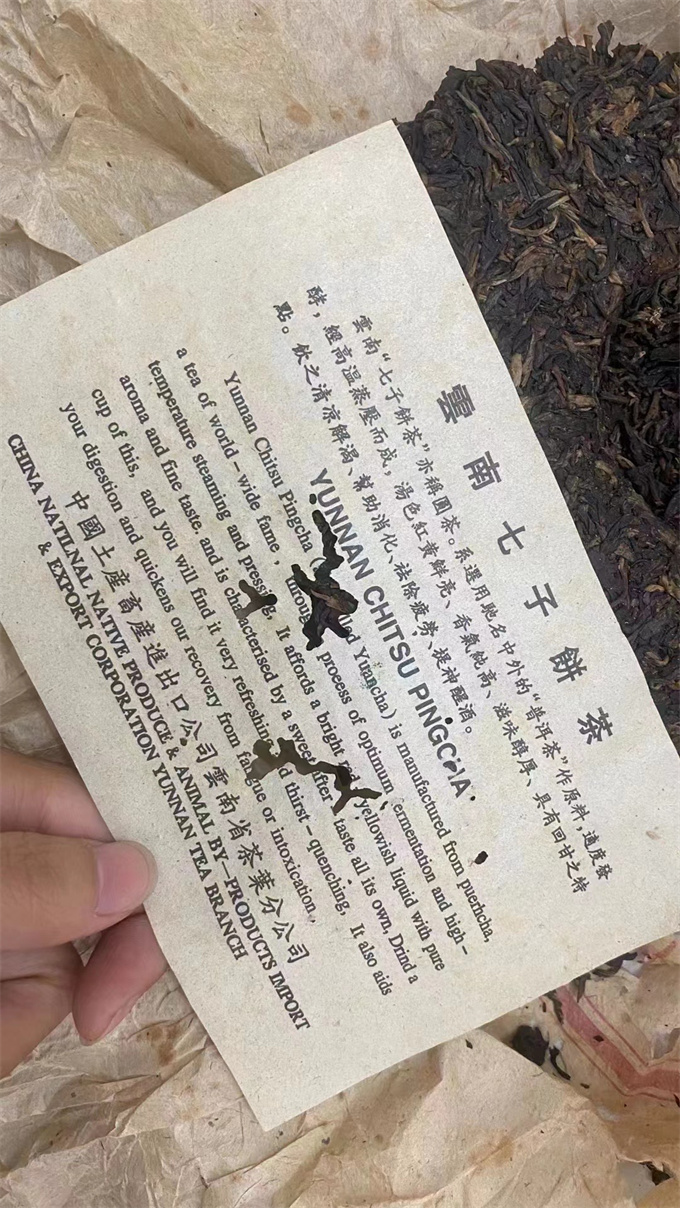 雲南七子餅茶
雲南“七子餅茶”亦稱圓茶。系選用馳名中外的“普洱茶”作原料，適度發
酵，經高溫蒸壓而成，湯色紅黄鮮亮、香氣純高、滋味醇厚、具有回甘之特
點。飲之清涼解渴、幫助消化、祛除疲勞、提神醒酒。
YUNNAN CHITSU PINGCHA
Yunnan Chitsu Pingcha Yuancha) is manufactured from puerhcha,
a tea of world-wide fame, through process of optimum ermentation and high-
temperature steaming and pressing. It affords a bright yellowish liquid with pure
aroma and fine taste, and is characterised by a sweet after taste all its own, Drind a
cup of this, and you will find it very refreshing and thirst-quenching, It also aids
your digestion and quickens our recovery from fatigue or intoxication,
中國土産畜産進出口公司雲南省茶葉分公司
CHINA NATILNAL NATIVE PRODUCE & ANIMAL BY-PRODUCTS IMPORT
& EXPORT CORPORATION YUNNAN TEA BRANCH